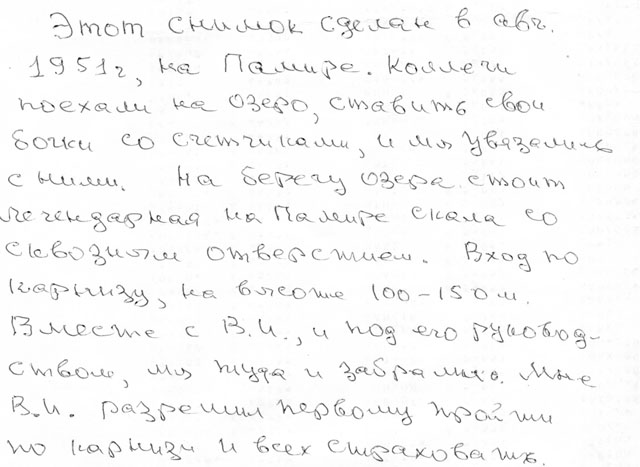 Этот снимок сделан в авг.
1951г, на Памире. Коллеги
поехали на озеро, ставить свои
бочки со счетчиками, и мы увязались
с ними. На берегу озера стоит
легендарная на Памире скала со
сквозным отверстием. Вход по
карнизу, на высоте 100-150м.
Вместе с В.И., и под его руковод-
ством, мы туда и забрались. Мне
В.И. разрешил первому пройти
по карнизу и всех страховать.